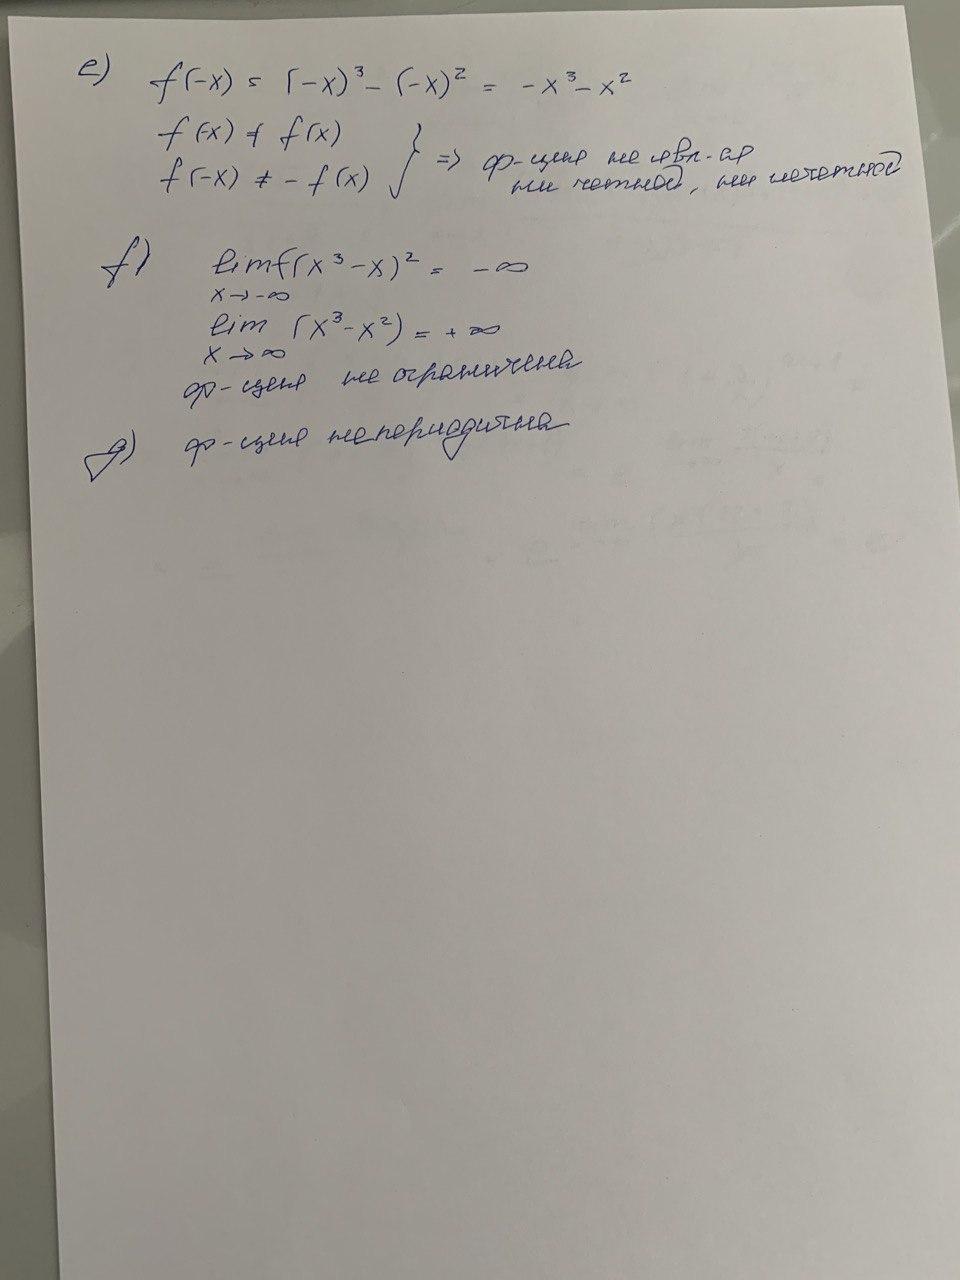 e) f(-x) = (-x)³ - (-x)² = -x³ - x²
f(-x) ≠ f(x)
f(-x) ≠ - f(x) } => ф-ция не явл-ся
ни четной, ни нечетной
f) limf(x³-x)² = -∞
x→-∞
lim (x³-x²) = +∞
x→∞
ф-ция не ограничена
g) ф-ция непериодична